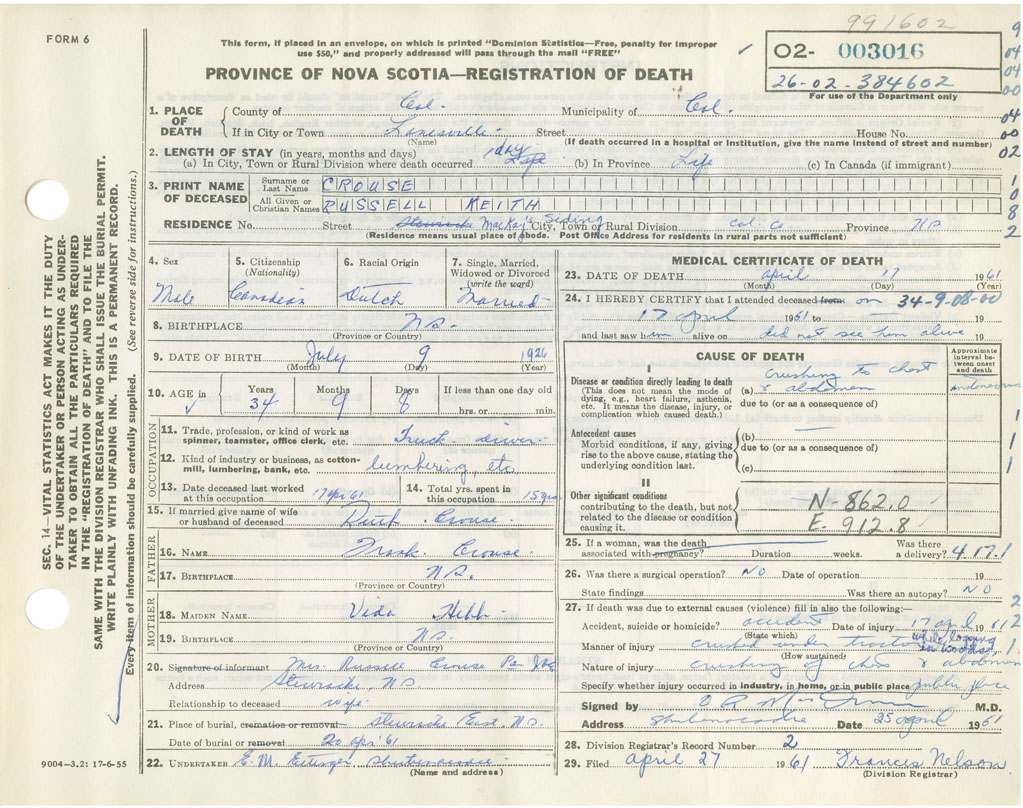 991602
FORM 6
This form, if placed in an envelope, on which is printed "Dominion Statistics—Free, penalty for improper
use $50," and properly addressed will pass through the mail "FREE"
O2- 003016
26-02-384602
For use of the Department only
PROVINCE OF NOVA SCOTIA—REGISTRATION OF DEATH
1. PLACE OF DEATH
County of Col. Municipality of Col.
If in City or Town Lanesville Street House No.
(Name) (If death occurred in a hospital or institution, give the name instead of street and number)
2. LENGTH OF STAY (in years, months and days) 1 day
(a) In City, Town or Rural Division where death occurred Life (b) In Province Life (c) In Canada (if immigrant)
3. PRINT NAME OF DECEASED
Surname or Last Name CROUSE
All Given or Christian Names RUSSELL KEITH
RESIDENCE No. Street Stewiacke MacKay Siding City, Town or Rural Division Col. Co. Province N.S.
(Residence means usual place of abode. Post Office Address for residents in rural parts not sufficient)
4. Sex Male
5. Citizenship (Nationality) Canadian
6. Racial Origin Dutch
7. Single, Married, Widowed or Divorced (write the word) Married
8. BIRTHPLACE N.S.
(Province or Country)
9. DATE OF BIRTH July 9 1926
(Month) (Day) (Year)
10. AGE in Years 34 Months 9 Days 8 If less than one day old
hrs. or min.
OCCUPATION
11. Trade, profession, or kind of work as spinner, teamster, office clerk, etc. Truck-driver
12. Kind of industry or business, as cotton-mill, lumbering, bank, etc. lumbering, etc.
13. Date deceased last worked at this occupation 17 Apr 61
14. Total yrs. spent in this occupation 15 yrs
15. If married give name of wife or husband of deceased Ruth Crouse
FATHER
16. NAME Frank Crouse
17. BIRTHPLACE N.S.
(Province or Country)
MOTHER
18. MAIDEN NAME Vida Hebb
19. BIRTHPLACE N.S.
(Province or Country)
20. Signature of informant Mrs. Russell Crouse Per
Address Stewiacke, N.S.
Relationship to deceased wife
21. Place of burial, cremation or removal Stewiacke East, N.S.
Date of burial or removal 20 Apr 61
22. UNDERTAKER E. M. Ettinger Shubenacadie
(Name and address)
9004—3.2: 17-6-55
MEDICAL CERTIFICATE OF DEATH
23. DATE OF DEATH April 17 1961
(Month) (Day) (Year)
24. I HEREBY CERTIFY that I attended deceased from on 34-9-08-00
17 April 1961 to 19
and last saw him alive on did not see him alive 19
CAUSE OF DEATH
Approximate interval between onset and death
I
Disease or condition directly leading to death
(This does not mean the mode of dying, e.g., heart failure, asthenia, etc. It means the disease, injury, or complication which caused death.)
(a) crushing to chest & abdomen
due to (or as a consequence of)
Antecedent causes
Morbid conditions, if any, giving rise to the above cause, stating the underlying condition last.
(b)
due to (or as a consequence of)
(c)
II
Other significant conditions
contributing to the death, but not related to the disease or condition causing it.
N-862.0
E-912.8
25. If a woman, was the death associated with pregnancy? Duration weeks. Was there a delivery? 4.17.1
26. Was there a surgical operation? NO Date of operation 19
State findings Was there an autopsy? NO
27. If death was due to external causes (violence) fill in also the following:—
Accident, suicide or homicide? accident Date of injury 17 April 1961
(State which)
Manner of injury crushed under tractor while logging in woods
(How sustained)
Nature of injury crushing of chest & abdomen
Specify whether injury occurred in industry, in home, or in public place public place
Signed by M.D.
Address Shubenacadie Date 25 April 1961
28. Division Registrar's Record Number 2
29. Filed April 27 1961 Francis Nelson
(Division Registrar)
SEC. 14—VITAL STATISTICS ACT MAKES IT THE DUTY
OF THE UNDERTAKER OR PERSON ACTING AS UNDER-
TAKER TO OBTAIN ALL THE PARTICULARS REQUIRED
IN THE "REGISTRATION OF DEATH" AND TO FILE THE
SAME WITH THE DIVISION REGISTRAR WHO SHALL ISSUE THE BURIAL PERMIT.
WRITE PLAINLY WITH UNFADING INK. THIS IS A PERMANENT RECORD.
Every item of information should be carefully supplied. (See reverse side for instructions.)
9
04
04
00
04
00
02
1
0
8
2
1
1
1
2
2
1